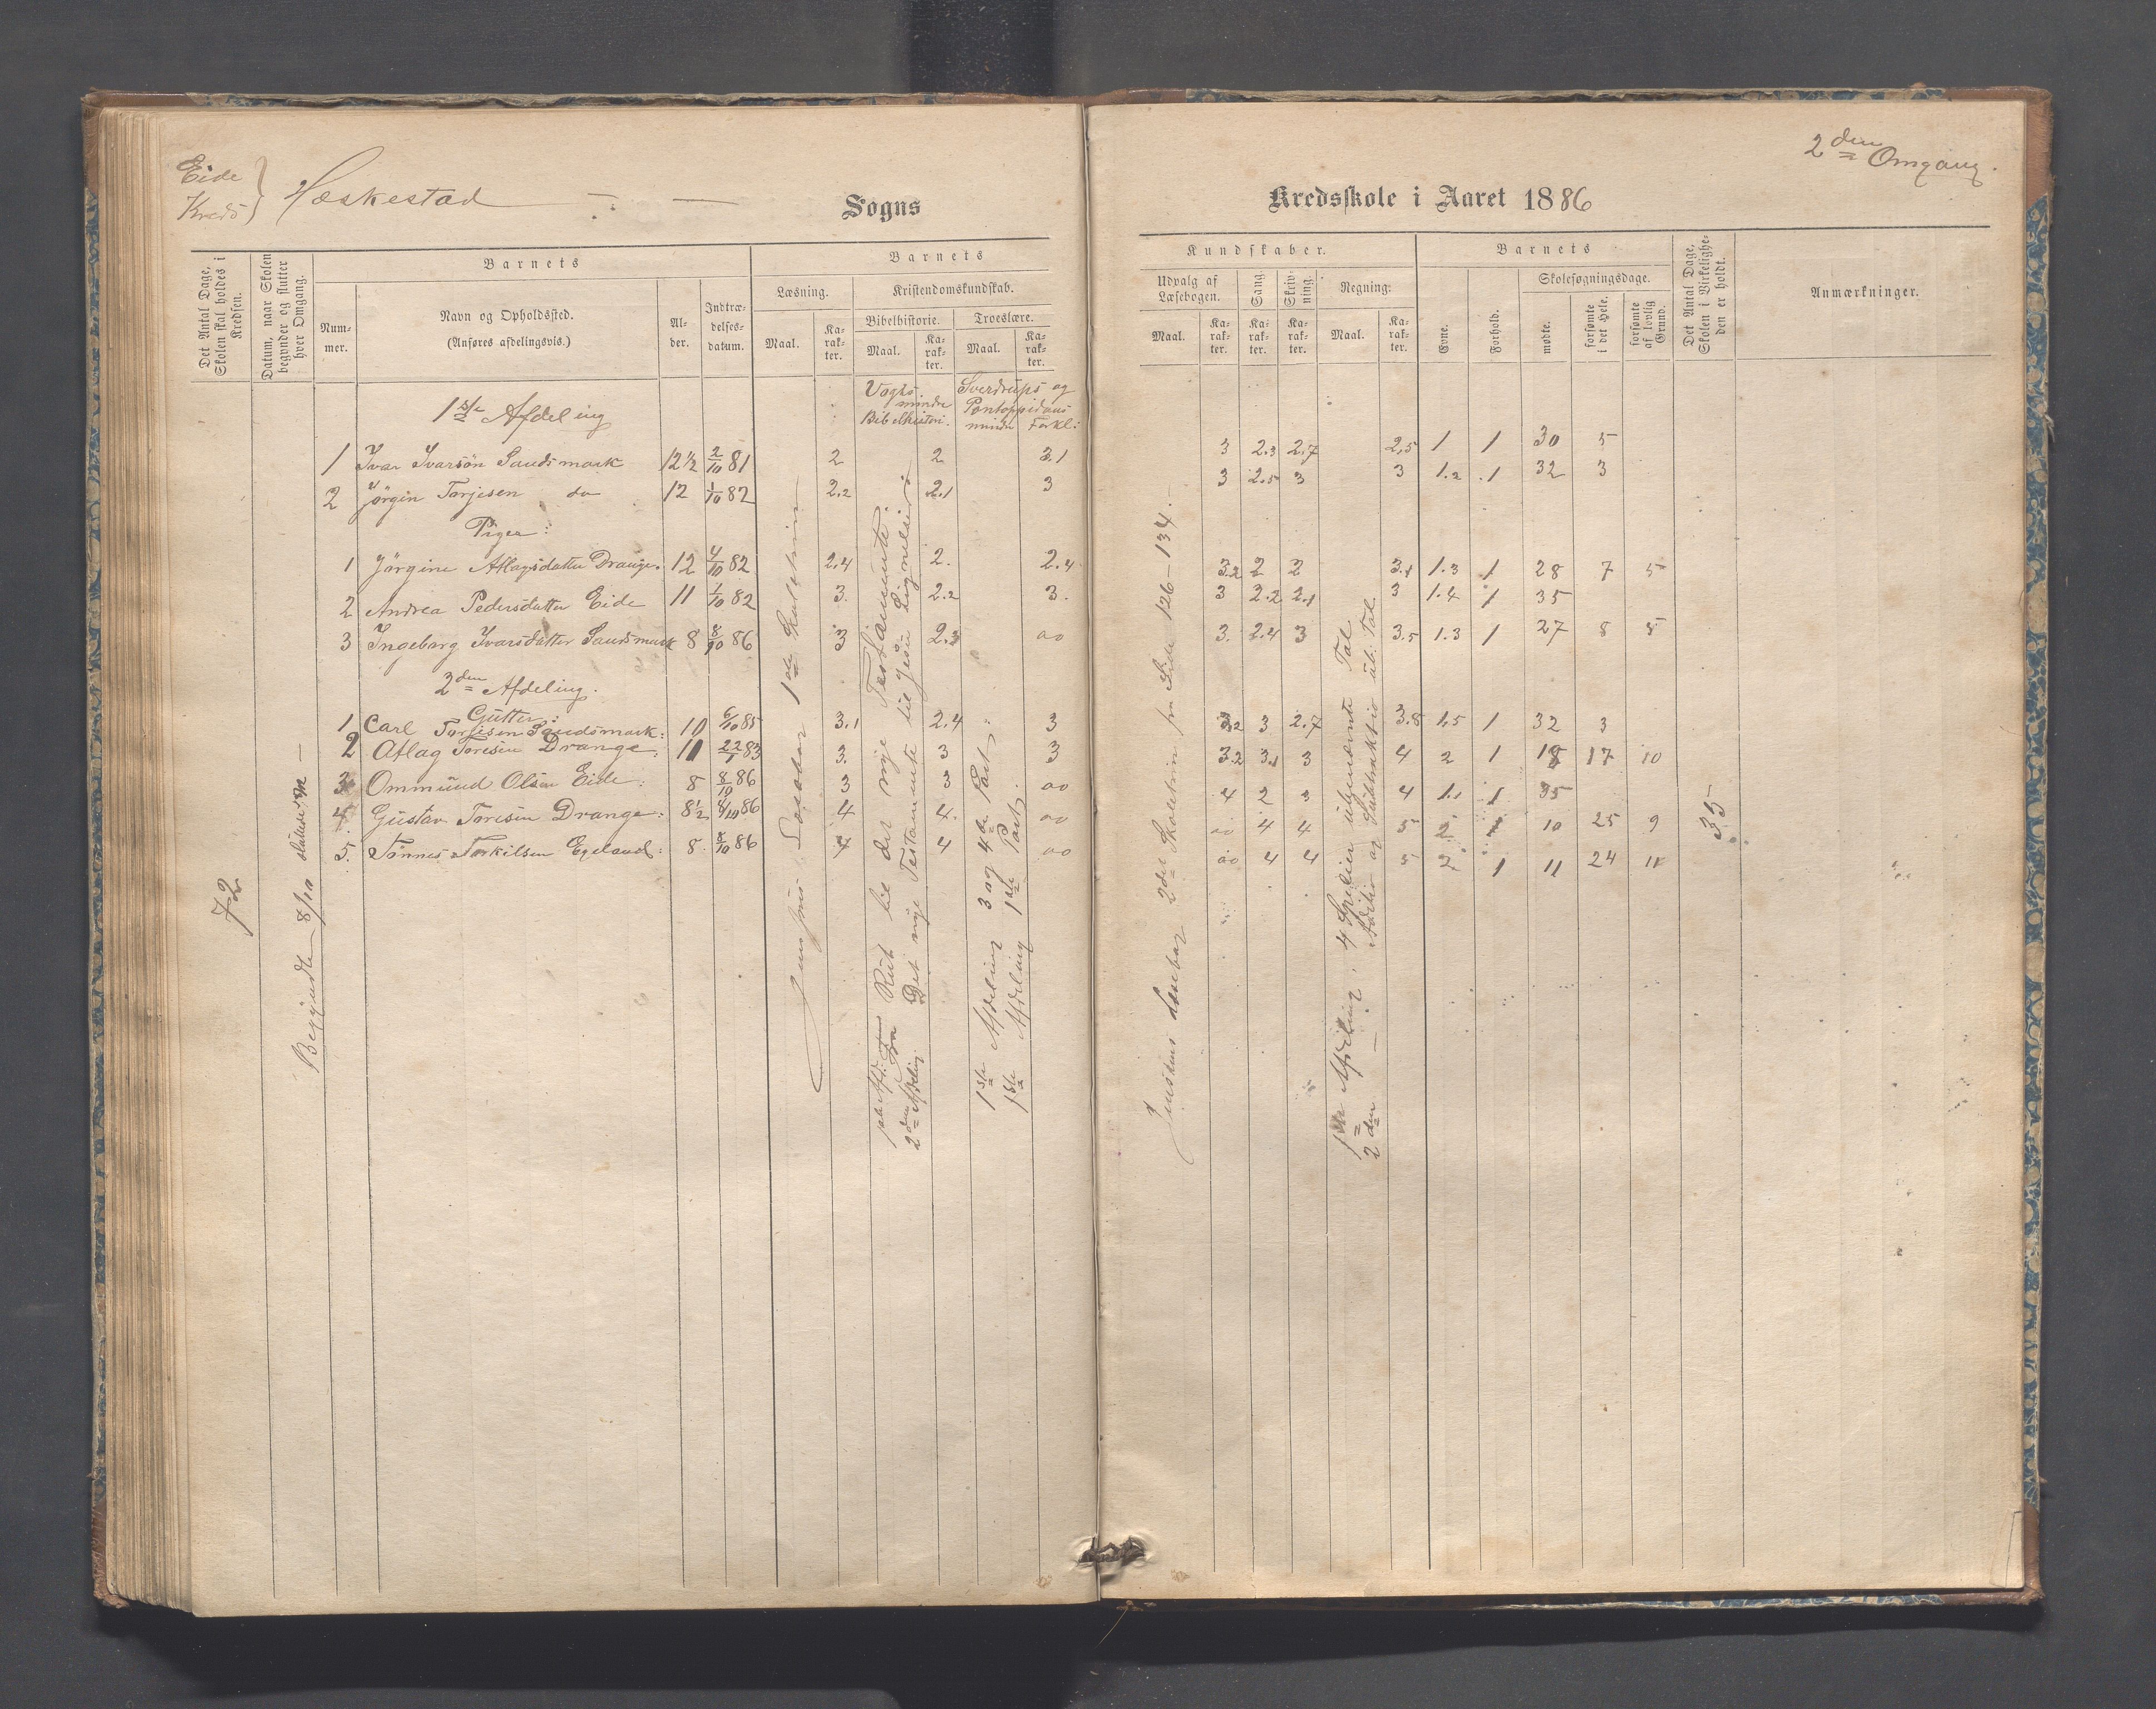 Eide
Kreds } Hæskestad Sogns
Det Antal Dage, Skolen skal holdes i Kredsen.
Datum, naar Skolen begynder og slutter hver Omgang.
Barnets
Num-
mer.
Navn og Opholdssted.
(Anføres afdelingsvis.)
Al-
der.
Indtræ-
delses-
datum.
Barnets
Læsning.
Kristendomskundskab.
Bibelhistorie.
Troeslære.
Maal.
Ka-
rak-
ter.
Maal.
Ka-
rak-
ter.
Maal.
Ka-
rak-
ter.
1ste Afdeling
Vogts mindre Bibelhistori.
Sverdrups og Pontoppidans mindre Forkl:
1 Ivar Ivarsön Sandsmark 12½ 2/10 81 2 2 3.1
2 Jörgin Torjesen do 12 1/10 82 2.2 2.1 3
Piger:
1 Jörgine Atlagsdatter Drange. 12 4/10 82 2.4 2. 2.4
2 Andrea Pedersdatter Eide 11 1/10 82 3. 2.2 3.
3 Ingeborg Ivarsdatter Sandsmark 8 8/10 86 3 2.3 ao
2den Afdeling.
Gutter:
1 Carl Torjesen Sandsmark: 10 6/10 85 3.1 2.4 3
2 Atlag Toresen Drange: 11 22/1 83 3. 3 3
3 Ommund Olsen Eide: 8 8/10 86 3 3 ao
4. Gustav Toresen Drange: 8½ 8/10 86 4 4. ao
5. Tönnes Torkilsen Egeland: 8 8/10 86 4 4 ao
72
Begyndte 8/10 sluttede
Jensens Læsebog 1ste Skoletrin
1ste Afd: fra Rut til det nye Testamente.
2den Afdeling Det nye Testamente til Jesu Lignelser
1ste Afdeling 3 og 4de Part.
1ste Afdeling 1ste Part.
2den Omgang.
Kredsskole i Aaret 1886
Kundskaber.
Udvalg af
Læsebogen.
Sang.
Skriv-
ning.
Regning:
Maal.
Ka-
rak-
ter.
Ka-
rak-
ter.
Ka-
rak-
ter.
Maal.
Ka-
rak-
ter.
Barnets
Evne.
Forhold.
Skolesøgningsdage.
mødte.
forsømte
i det Hele.
forsømte
af lovlig
Grund.
Det Antal Dage,
Skolen i Virkelighe-
den er holdt.
Anmærkninger.
3 2.3 2.7 2.5 1 1 30 5
3 2.5 3 3 1.2 1 32 3
3.2 2 2 3.1 1.3 1 28 7 5
3 2.2 2.1 3 1.4 1 35
3. 2.4 3 3.5 1.3 1 27 8 8
3.2 3 2.7 3.8 1.5 1 32 3
3.2 3.1 3 4 2 1 18 17 10
4 2 3 4 1.1 1 35
ao 4 4 5 2 1 10 25 9
ao 4 4 5 2 1 11 24 11
35
Jensens Læsebog 2det Skoletrin fra Side 126-134.
1ste Afdeling: 4 Spesier ubenævnte Tal
2den — Additio og Subtraktio ub: Tal.